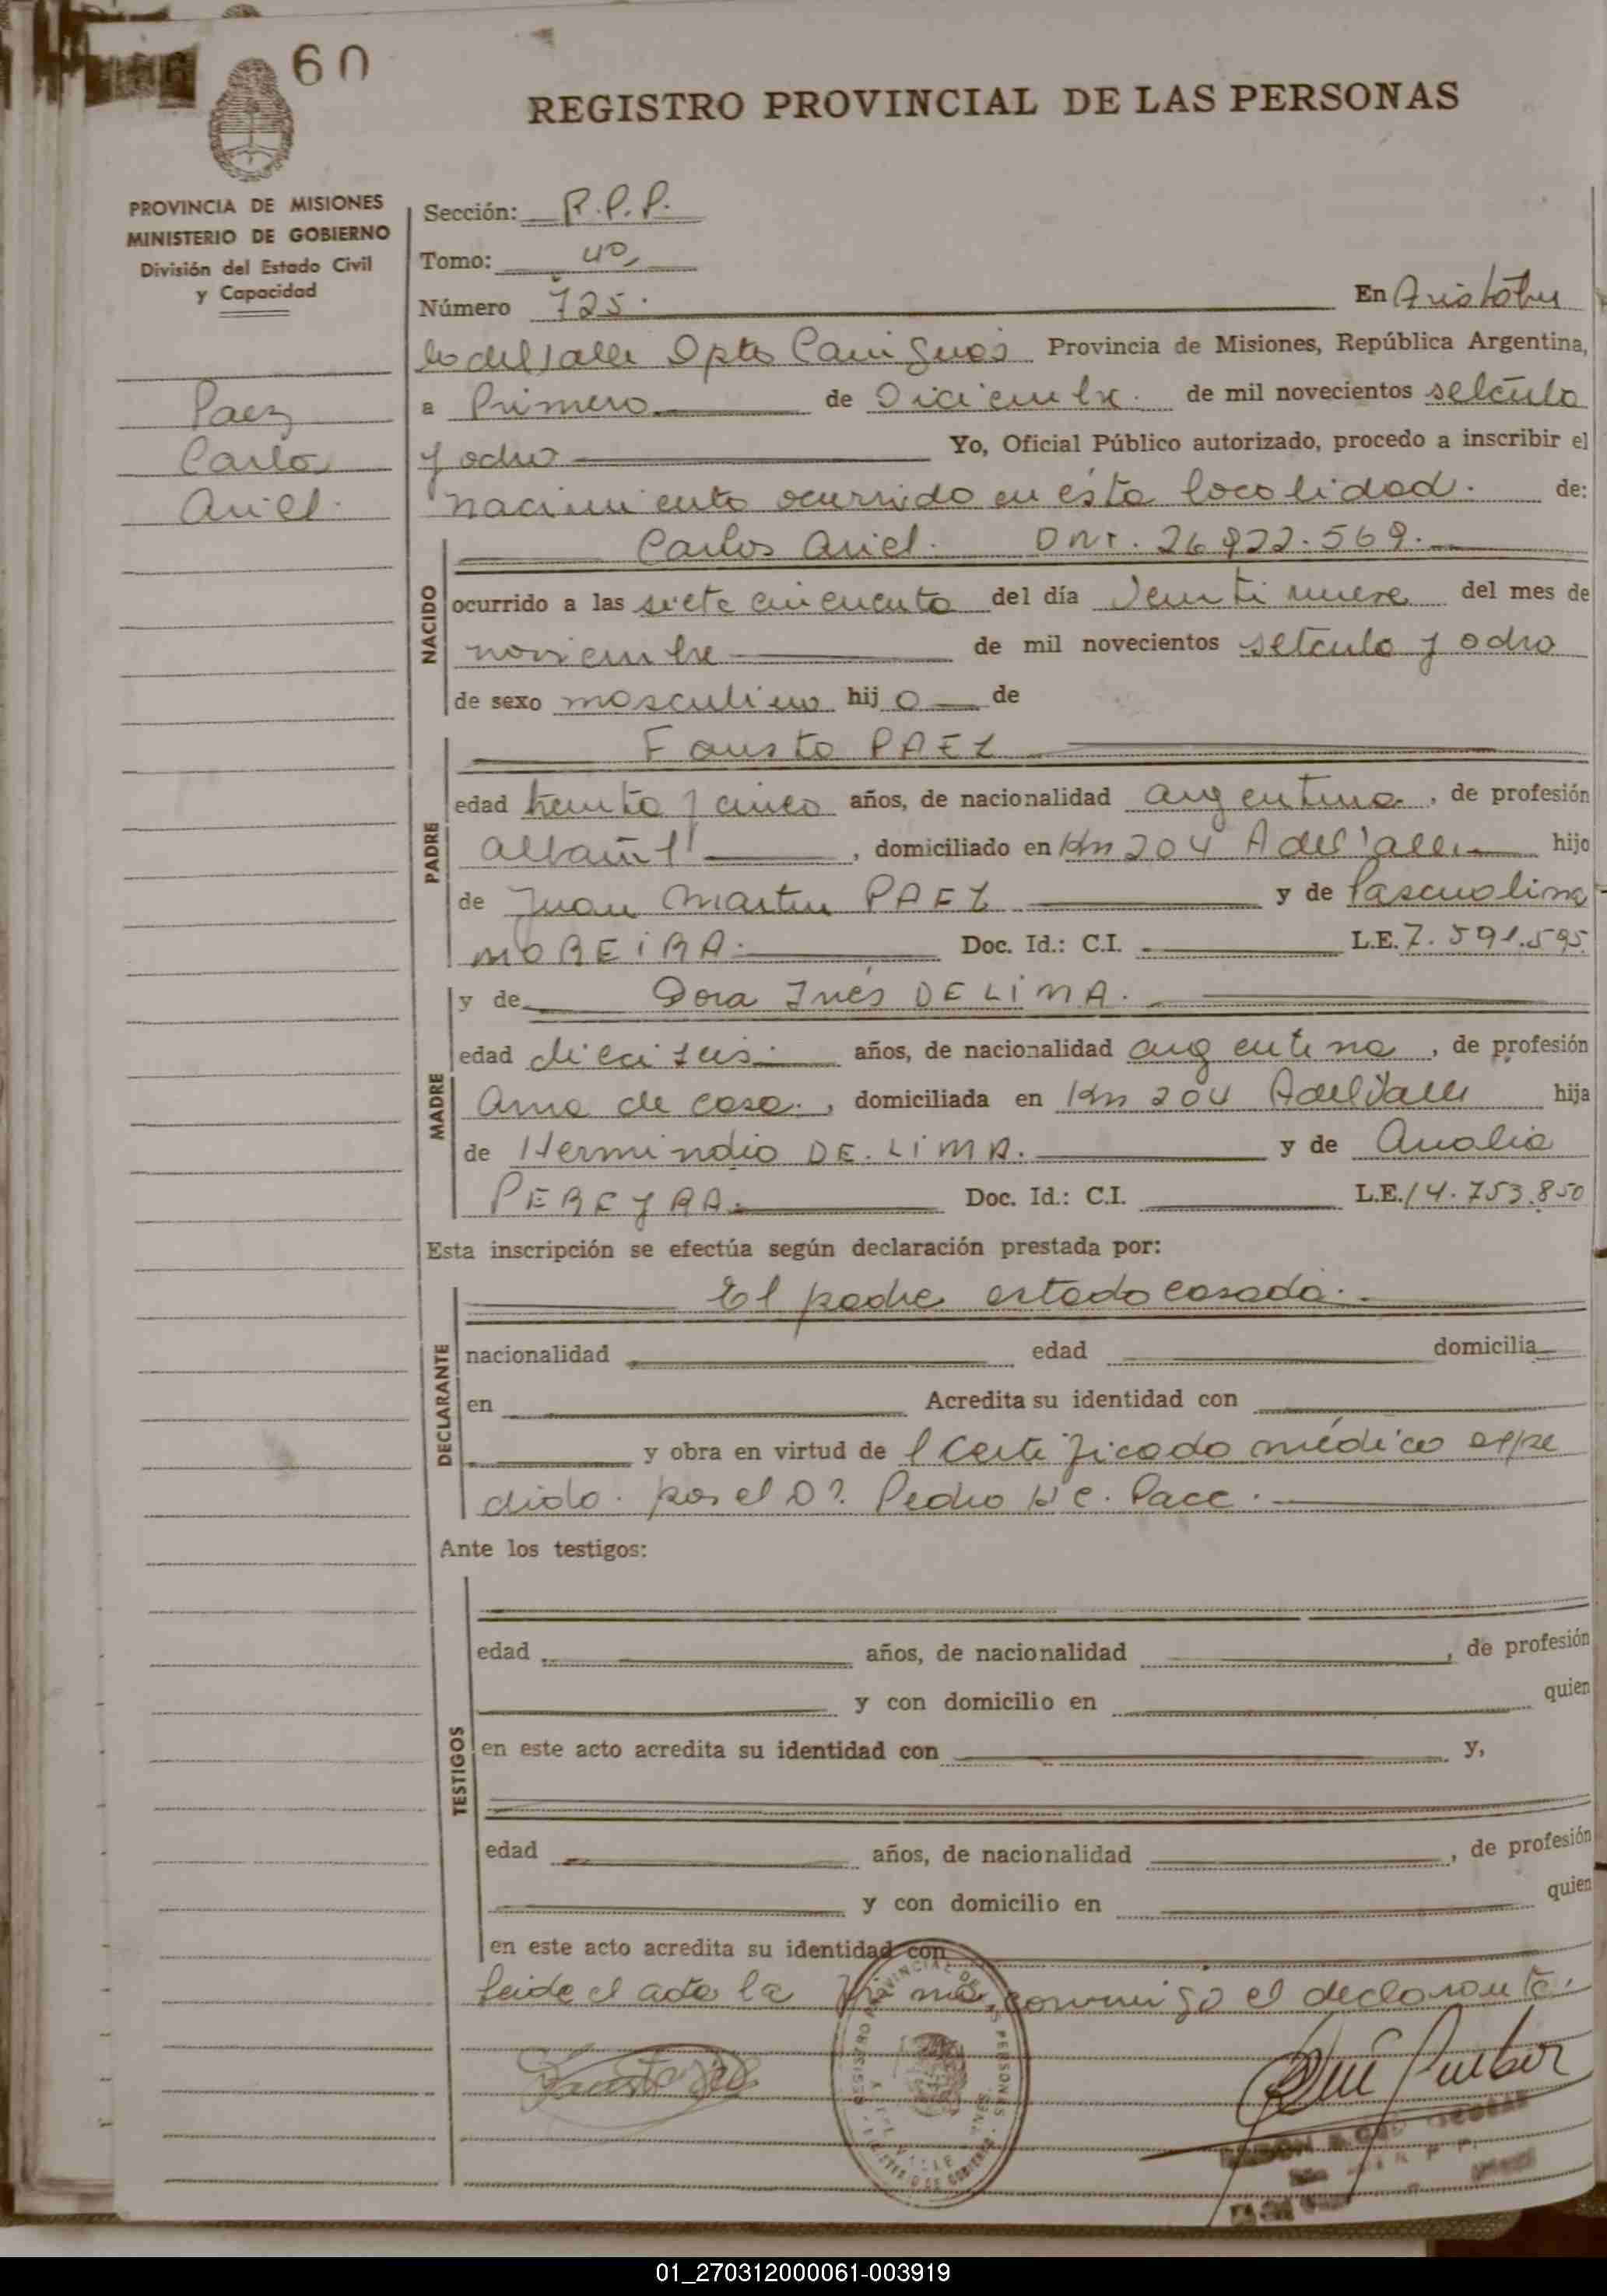 60
REGISTRO PROVINCIAL DE LAS PERSONAS
PROVINCIA DE MISIONES
MINISTERIO DE GOBIERNO
División del Estado Civil
y Capacidad
Paez
Carlos
Ariel.
Sección: R.P.P.
Tomo: 40
Número 725. En Aristóbu
lo del Valle Dpto Cainguás Provincia de Misiones, República Argentina,
a Primero de Diciembre. de mil novecientos setenta
y ocho Yo, Oficial Público autorizado, procedo a inscribir el
nacimiento ocurrido en ésta localidad. de:
NACIDO
Carlos Ariel. DNI. 26.922.569.
ocurrido a las siete cincuenta del día Veintinueve del mes de
noviembre de mil novecientos setenta y ocho
de sexo masculino hij o de
PADRE
Fausto PAEZ
edad treinta y cinco años, de nacionalidad argentina, de profesión
albañil, domiciliado en Km 204 A del Valle hijo
de Juan Martin PAEZ y de Pascualina
MOREIRA. Doc. Id.: C.I. L.E. 7.591.595
MADRE
y de Dora Inés DE LIMA.
edad dieciseis años, de nacionalidad argentina, de profesión
Ama de casa., domiciliada en Km 204 A del Valle hija
de Hermindio DE. LIMA. y de Analia
PEREYRA. Doc. Id.: C.I. L.E. 14.753.850
Esta inscripción se efectúa según declaración prestada por:
DECLARANTE
El padre estado casado.
nacionalidad edad domicilia
en Acredita su identidad con
y obra en virtud de l Certificado médico expe
dido. por el Dr. Pedro Pace.
Ante los testigos:
TESTIGOS
edad años, de nacionalidad , de profesión
y con domicilio en quien
en este acto acredita su identidad con y,
edad años, de nacionalidad , de profesión
y con domicilio en quien
en este acto acredita su identidad con
Leida el acta la firma, conmigo el declarante.
REGISTRO PROVINCIAL DE LAS PERSONAS
01_270312000061-003919